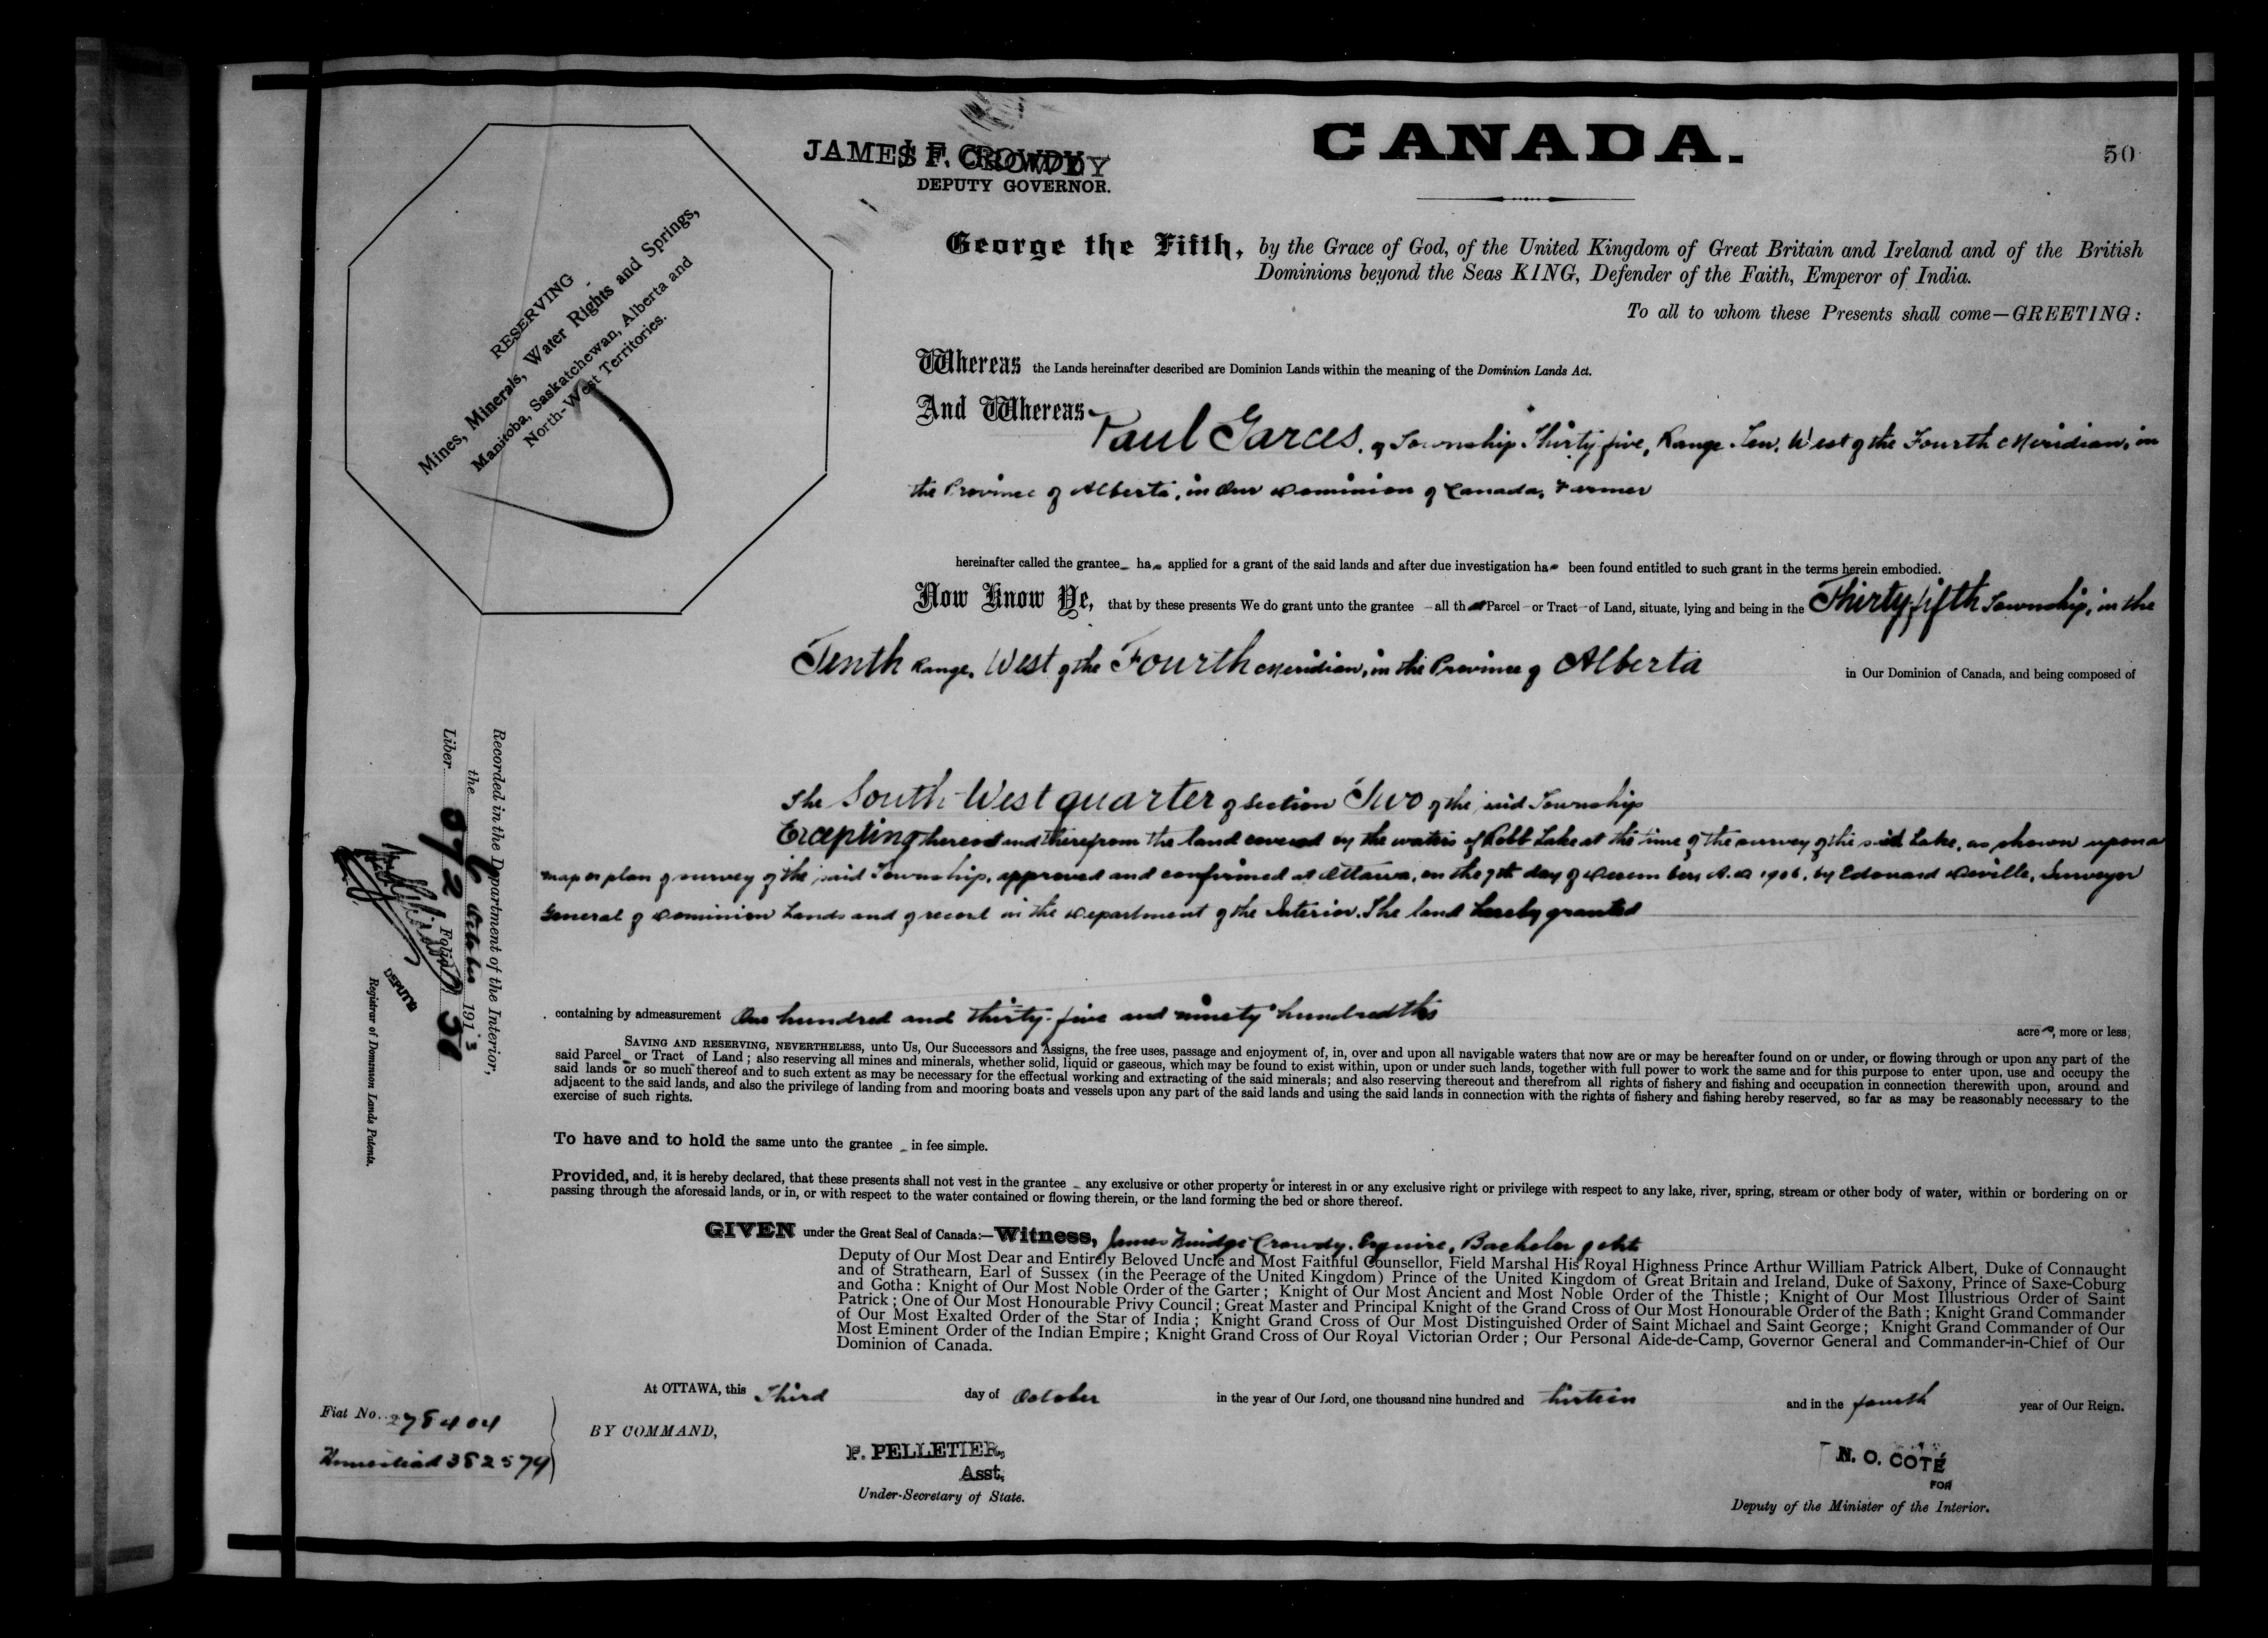 CANADA.
50
JAMES F. CROWDY
DEPUTY GOVERNOR.
RESERVING
Mines, Minerals, Water Rights and Springs,
Manitoba, Saskatchewan, Alberta and
North-West Territories.
George the Fifth, by the Grace of God, of the United Kingdom of Great Britain and Ireland and of the British
Dominions beyond the Seas KING, Defender of the Faith, Emperor of India.
To all to whom these Presents shall come—GREETING:
Whereas the Lands hereinafter described are Dominion Lands within the meaning of the Dominion Lands Act.
And Whereas Paul Garces, of Township Thirty five, Range Ten, West of the Fourth Meridian, in
the Province of Alberta, in Our Dominion of Canada, Farmer
hereinafter called the grantee has applied for a grant of the said lands and after due investigation has been found entitled to such grant in the terms herein embodied.
Now Know Ye, that by these presents We do grant unto the grantee all that Parcel or Tract of Land, situate, lying and being in the Thirty fifth Township, in the
Tenth Range, West of the Fourth Meridian, in the Province of Alberta in Our Dominion of Canada, and being composed of
The South West quarter of Section Two of the said Township
Excepting thereout and therefrom the land covered by the waters of Robb Lake at the time of the survey of the said Lake, as shown upon a
map or plan of survey of the said Township, approved and confirmed at Ottawa, on the 7th day of December, A.D 1906, by Edouard Deville, Surveyor
General of Dominion Lands and of record in the Department of the Interior. The land hereby granted
containing by admeasurement One hundred and thirty-five and ninety hundredths
acres, more or less;
SAVING AND RESERVING, NEVERTHELESS, unto Us, Our Successors and Assigns, the free uses, passage and enjoyment of, in, over and upon all navigable waters that now are or may be hereafter found on or under, or flowing through or upon any part of the
said Parcel or Tract of Land; also reserving all mines and minerals, whether solid, liquid or gaseous, which may be found to exist within, upon or under such lands, together with full power to work the same and for this purpose to enter upon, use and occupy the
said lands or so much thereof and to such extent as may be necessary for the effectual working and extracting of the said minerals; and also reserving thereout and therefrom all rights of fishery and fishing and occupation in connection therewith upon, around and
adjacent to the said lands, and also the privilege of landing from and mooring boats and vessels upon any part of the said lands and using the said lands in connection with the rights of fishery and fishing hereby reserved, so far as may be reasonably necessary to the
exercise of such rights.
To have and to hold the same unto the grantee in fee simple.
Provided, and, it is hereby declared, that these presents shall not vest in the grantee any exclusive or other property or interest in or any exclusive right or privilege with respect to any lake, river, spring, stream or other body of water, within or bordering on or
passing through the aforesaid lands, or in, or with respect to the water contained or flowing therein, or the land forming the bed or shore thereof.
GIVEN under the Great Seal of Canada:—Witness, James Crowdy, Esquire, Bachelor of Arts
Deputy of Our Most Dear and Entirely Beloved Uncle and Most Faithful Counsellor, Field Marshal His Royal Highness Prince Arthur William Patrick Albert, Duke of Connaught
and of Strathearn, Earl of Sussex (in the Peerage of the United Kingdom) Prince of the United Kingdom of Great Britain and Ireland, Duke of Saxony, Prince of Saxe-Coburg
and Gotha: Knight of Our Most Noble Order of the Garter; Knight of Our Most Ancient and Most Noble Order of the Thistle; Knight of Our Most Illustrious Order of Saint
Patrick; One of Our Most Honourable Privy Council; Great Master and Principal Knight of the Grand Cross of Our Most Honourable Order of the Bath; Knight Grand Commander
of Our Most Exalted Order of the Star of India; Knight Grand Cross of Our Most Distinguished Order of Saint Michael and Saint George; Knight Grand Commander of Our
Most Eminent Order of the Indian Empire; Knight Grand Cross of Our Royal Victorian Order; Our Personal Aide-de-Camp, Governor General and Commander-in-Chief of Our
Dominion of Canada.
At OTTAWA, this Third day of October in the year of Our Lord, one thousand nine hundred and thirteen and in the fourth year of Our Reign.
BY COMMAND,
F. PELLETIER,
Asst.
Under-Secretary of State.
N. O. COTÉ
FOR
Deputy of the Minister of the Interior.
Fiat No. 278404
Homestead 382574
Recorded in the Department of the Interior,
the October 1913
Liber 072 Folio 50
DEPUTY
Registrar of Dominion Lands Patents.